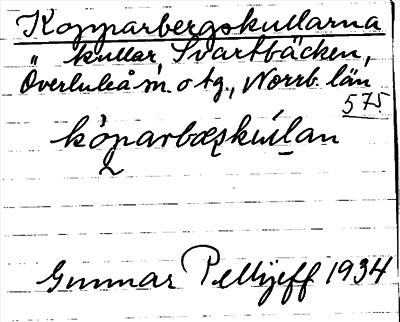 Kopparbergskullarna
kullar, Svartbäcken,
Överluleå sn. o tg., Norrb. län
575
kòparbæṣkúlan
Gunnar Pellijeff 1934